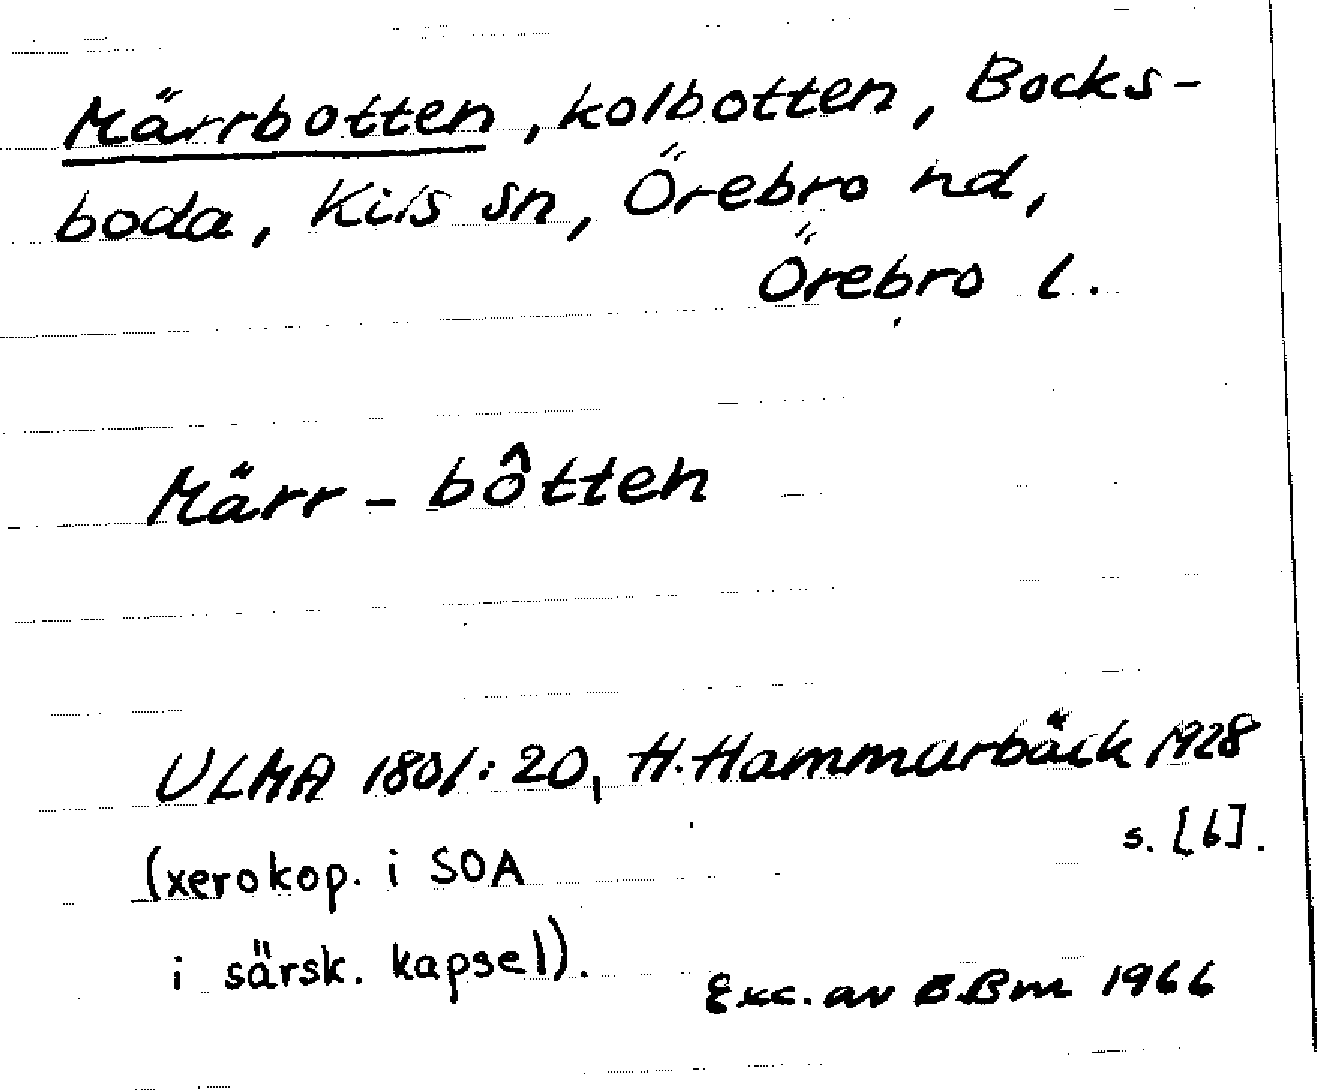 Märrbotten, kolbotten, Bocks-
boda, Kils sn, Örebro hd,
Örebro l.
Märr - bôtten
ULMA 1801:20, H. Hammarbäck 1928
s. [6].
(xerokop. i SOA
i särsk. kapsel).
Exc. av B.Bm 1966